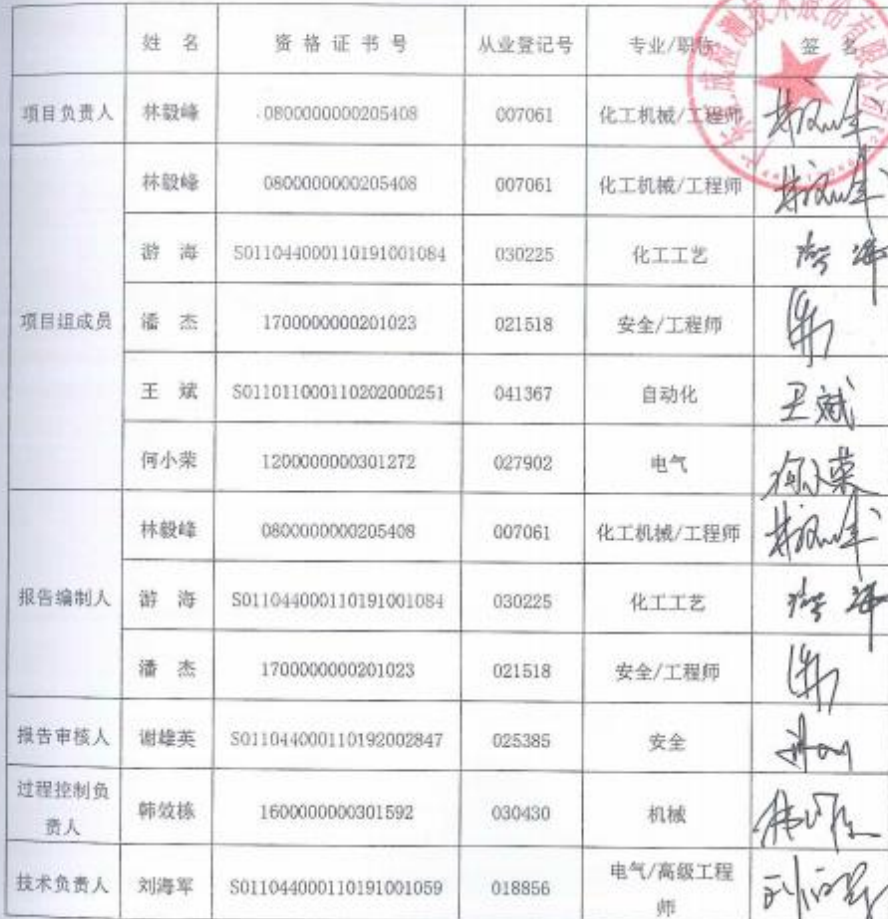 姓 名 资 格 证 书 号 从业登记号 专业/职称 签 名
项目负责人 林毅峰 0800000000205408 007061 化工机械/工程师
项目组成员 林毅峰 0800000000205408 007061 化工机械/工程师
游 海 S011044000110191001084 030225 化工工艺 游 海
潘 杰 1700000000201023 021518 安全/工程师
王 斌 S011011000110202000251 041367 自动化 王斌
何小荣 1200000000301272 027902 电气 何小荣
报告编制人 林毅峰 0800000000205408 007061 化工机械/工程师
游 海 S011044000110191001084 030225 化工工艺 游 海
潘 杰 1700000000201023 021518 安全/工程师
报告审核人 谢雄英 S011044000110192002847 025385 安全
过程控制负
责人 韩效栋 1600000000301592 030430 机械
技术负责人 刘海军 S011044000110191001059 018856 电气/高级工程
师